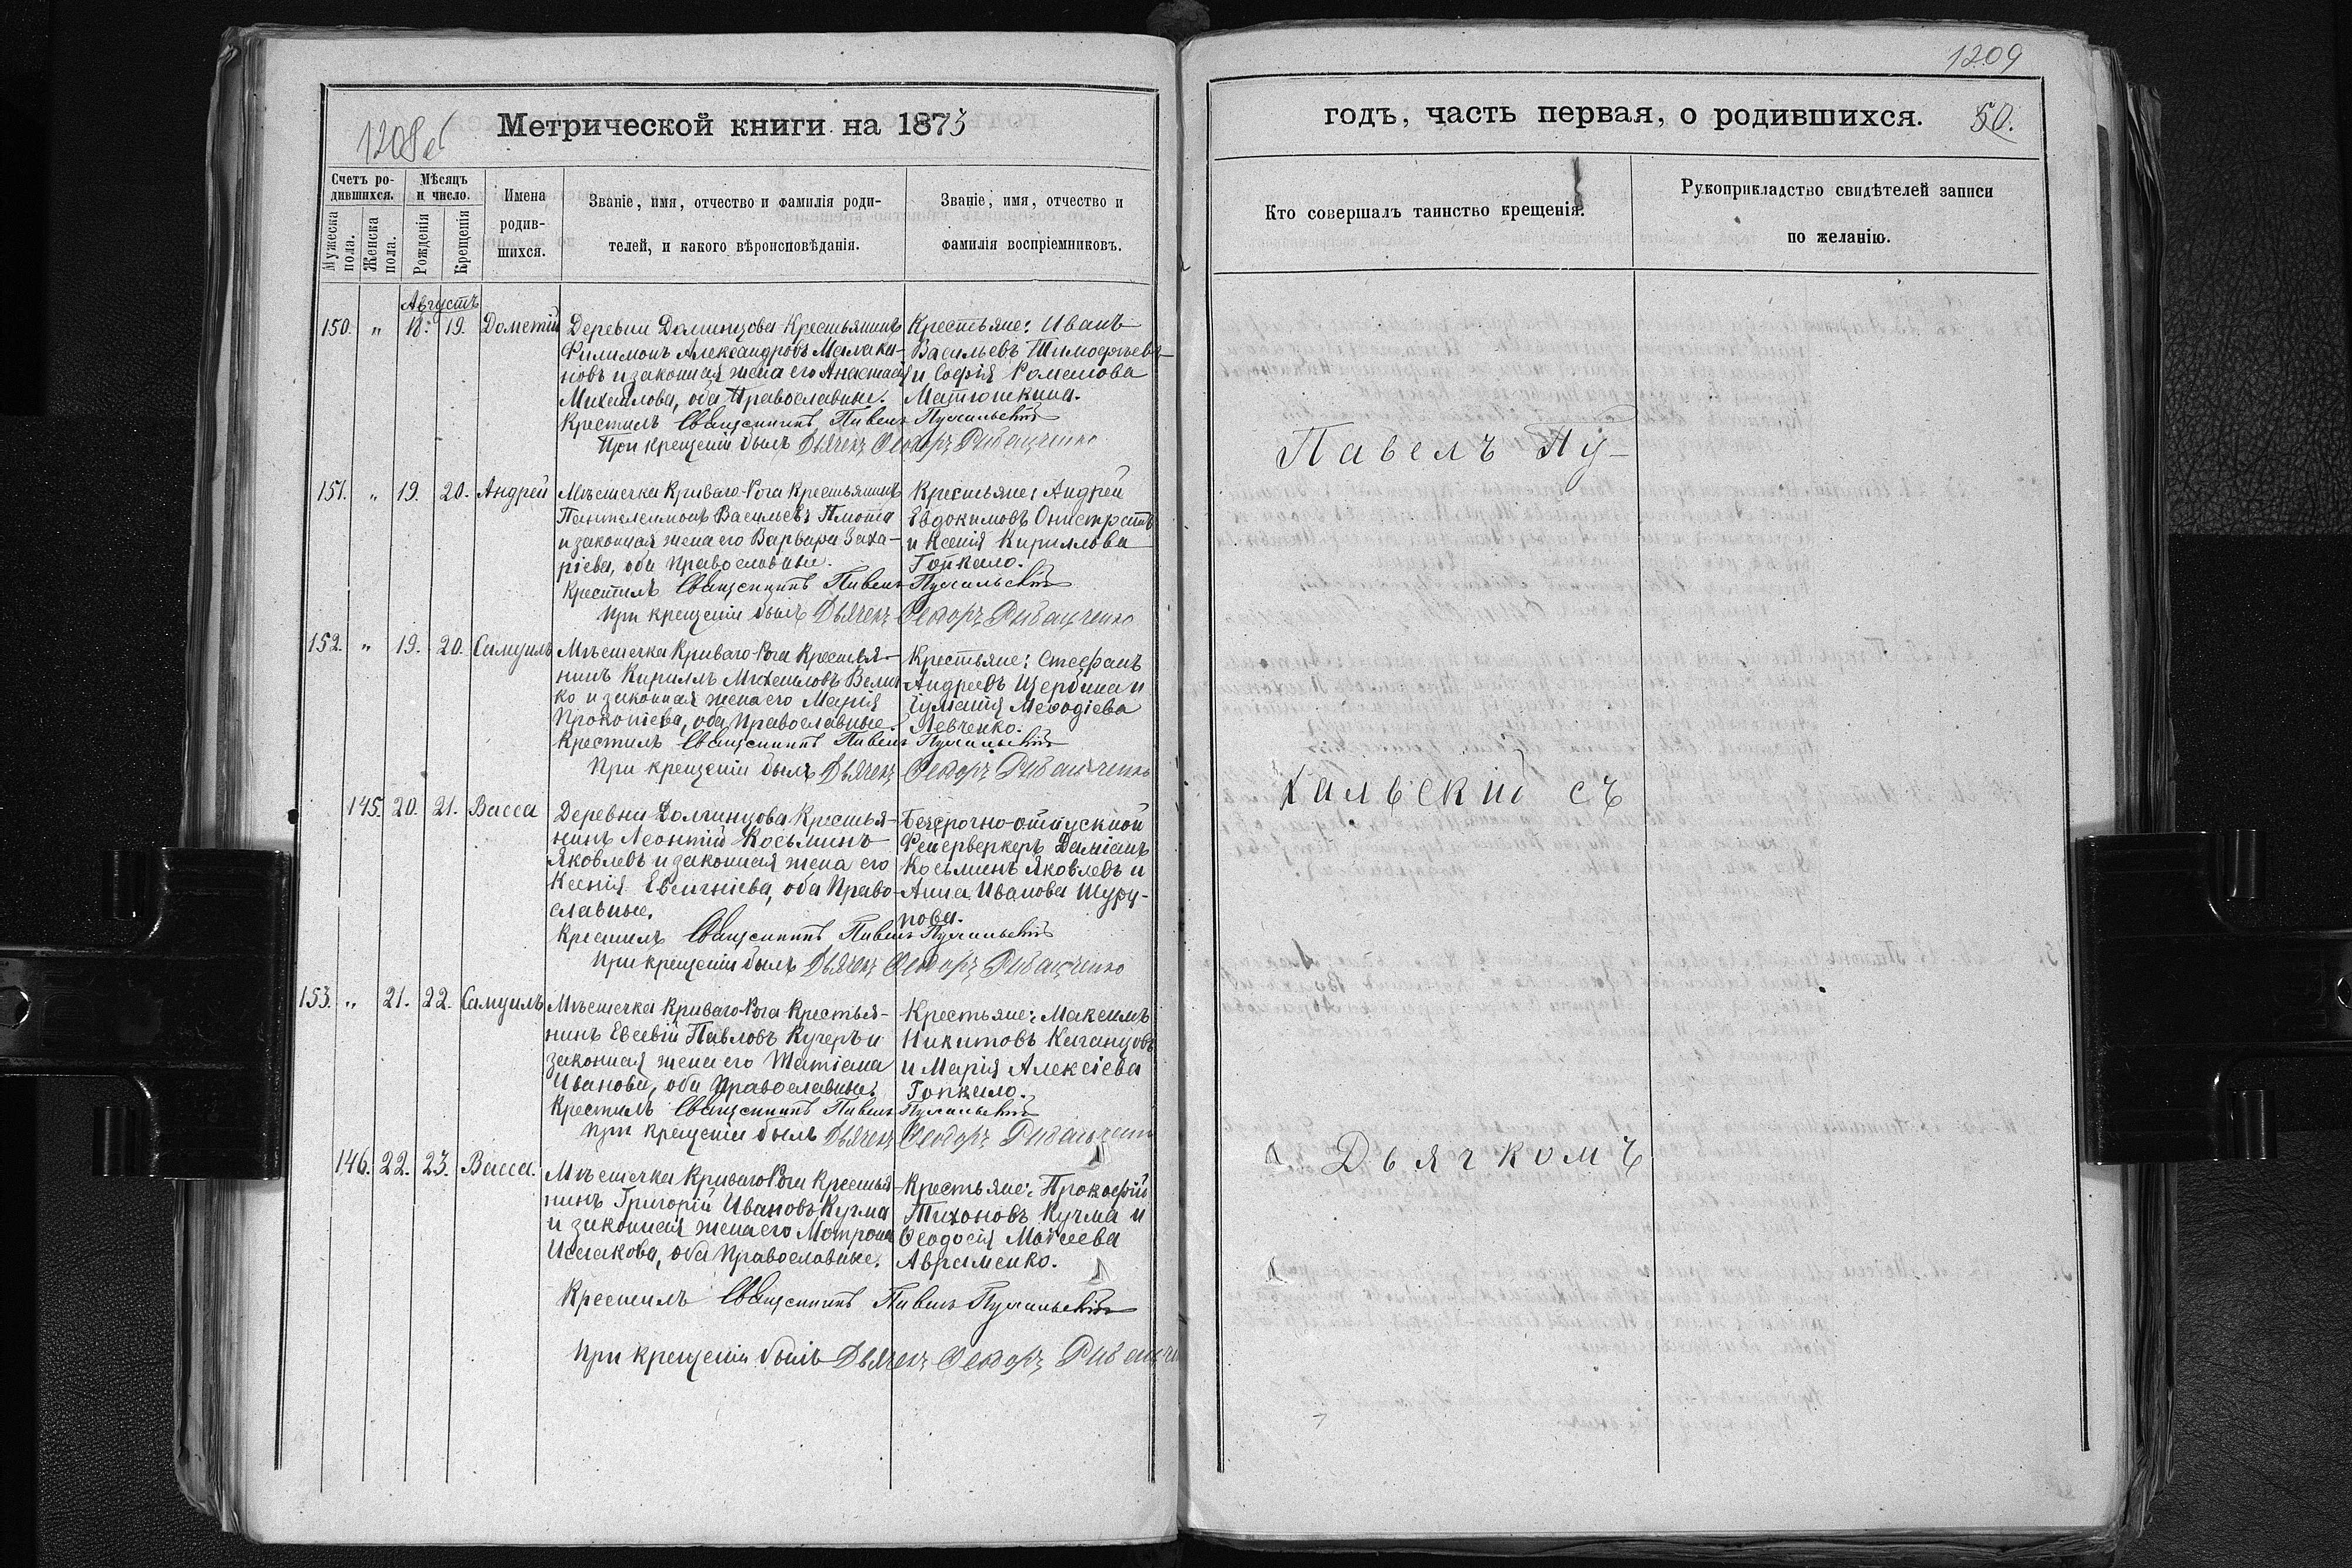 1208 об
Метрической книги на 1873
Счетъ ро-
дившихся.
Мужеска пола.
Женска пола.
Мѣсяцъ
и число.
Рожденія
Крещенія
Имена
родив-
шихся.
Званіе, имя, отчество и фамилія роди-
телей, и какого вѣроисповѣданія.
Званіе, имя, отчество и
фамилія воспріемниковъ.
Августъ
150. " 18. 19. Дометій Деревни Долинцова Крестьянинъ Крестьяне: Иванъ
Филимонъ Александровъ Малаки- Васильевъ Тимофѣевъ
новъ и законная жена его Анастасія и Софія Романова
Михайлова, оба Православные. Матюшкина.
Крестилъ Священникъ Павелъ
При крещеніи былъ Дьячекъ Ѳеодоръ
151. " 19. 20. Андрей Мѣстечка Криваго-Рога Крестьянинъ Крестьяне: Андрей
Пантелеимонъ Васильевъ Плюта Евдокимовъ
и законная жена его Варвара Заха- и Ксенія Кириллова
ріева, оба Православные. Гопкало.
Крестилъ Священникъ Павелъ
При крещеніи былъ Дьячекъ Ѳеодоръ
152. " 19. 20. Самуилъ Мѣстечка Криваго-Рога Крестья- Крестьяне: Стефанъ
нинъ Кириллъ Михаиловъ Велич- Андреевъ Щербина и
ко и законная жена его Марія Іуліанія Меѳодіева
Прокопіева, оба Православные. Левченко.
Крестилъ Священникъ Павелъ
При крещеніи былъ Дьячекъ Ѳеодоръ
145. 20. 21. Васса Деревни Долинцова Крестья- Безсрочно-отпускной
нинъ Леонтій Косьминъ Фейерверкеръ Даміанъ
Яковлевъ и законная жена его Косьминъ Яковлевъ и
Ксенія Евгеніева, оба Право- Анна Иванова Шуру-
славные. пова.
Крестилъ Священникъ Павелъ
При крещеніи былъ Дьячекъ Ѳеодоръ
153. " 21. 22. Самуилъ Мѣстечка Криваго-Рога Крестья- Крестьяне: Максимъ
нинъ Евсевій Павловъ Кучеръ и Никитовъ Каганцовъ
законная жена его Татіана и Марія Алексіева
Иванова, оба Православные. Гопкало.
Крестилъ Священникъ Павелъ
При крещеніи былъ Дьячекъ Ѳеодоръ
146. 22. 23. Васса. Мѣстечка Криваго-Рога Крестья- Крестьяне: Прокофій
нинъ Григорій Ивановъ Кучма Тихоновъ Кучма и
и законная жена его Мотрона Ѳеодосія Моѵсеева
Исаакова, оба Православные. Авраменко.
Крестилъ Священникъ Павелъ
При крещеніи былъ Дьячекъ Ѳеодоръ
1209
годъ, часть первая, о родившихся. 50.
Кто совершалъ таинство крещенія.
Рукоприкладство свидѣтелей записи
по желанію.
Павелъ Пу-
хальскій съ
Дьячкомъ